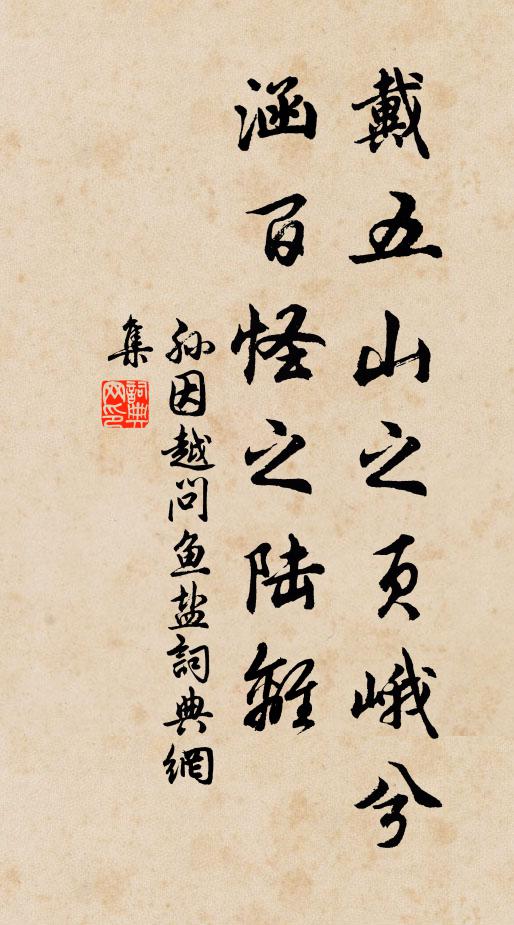 戴五山之页峨兮
涵百怪之陆離
孙因越问鱼盐詞典網
集
詞典
网印